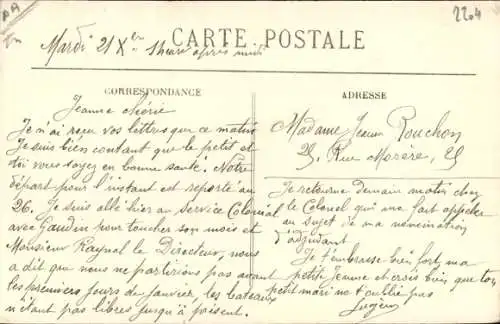 2204
Mardi 21 Xbre 1 heure après midi
CARTE POSTALE
CORRESPONDANCE
Jeanne chérie
Je n'ai reçu vos lettres que ce matin
Je suis bien contant que le petit et
toi vous soyez en bonne santé. Notre
départ pour l'instant est reporté au
26. Je suis allé hier au service Colonial
avec Gaudin pour toucher son mois et
Monsieur Raynal le Directeur, nous
a dit que nous ne partirions pas avant
les premiers jours de janvier, les bateaux
n'étant pas libres jusqu'à présent.
ADRESSE
Madame Jeanne Rouchon
25, Rue Morère, 25
Je retourne demain matin chez
le Colonel qui me fait appeler
au sujet de ma nomination
d'adjudant
Je t'embrasse bien fort ma
petite Jeanne et crois bien que ton
petit mari ne t'oublie pas
Eugène